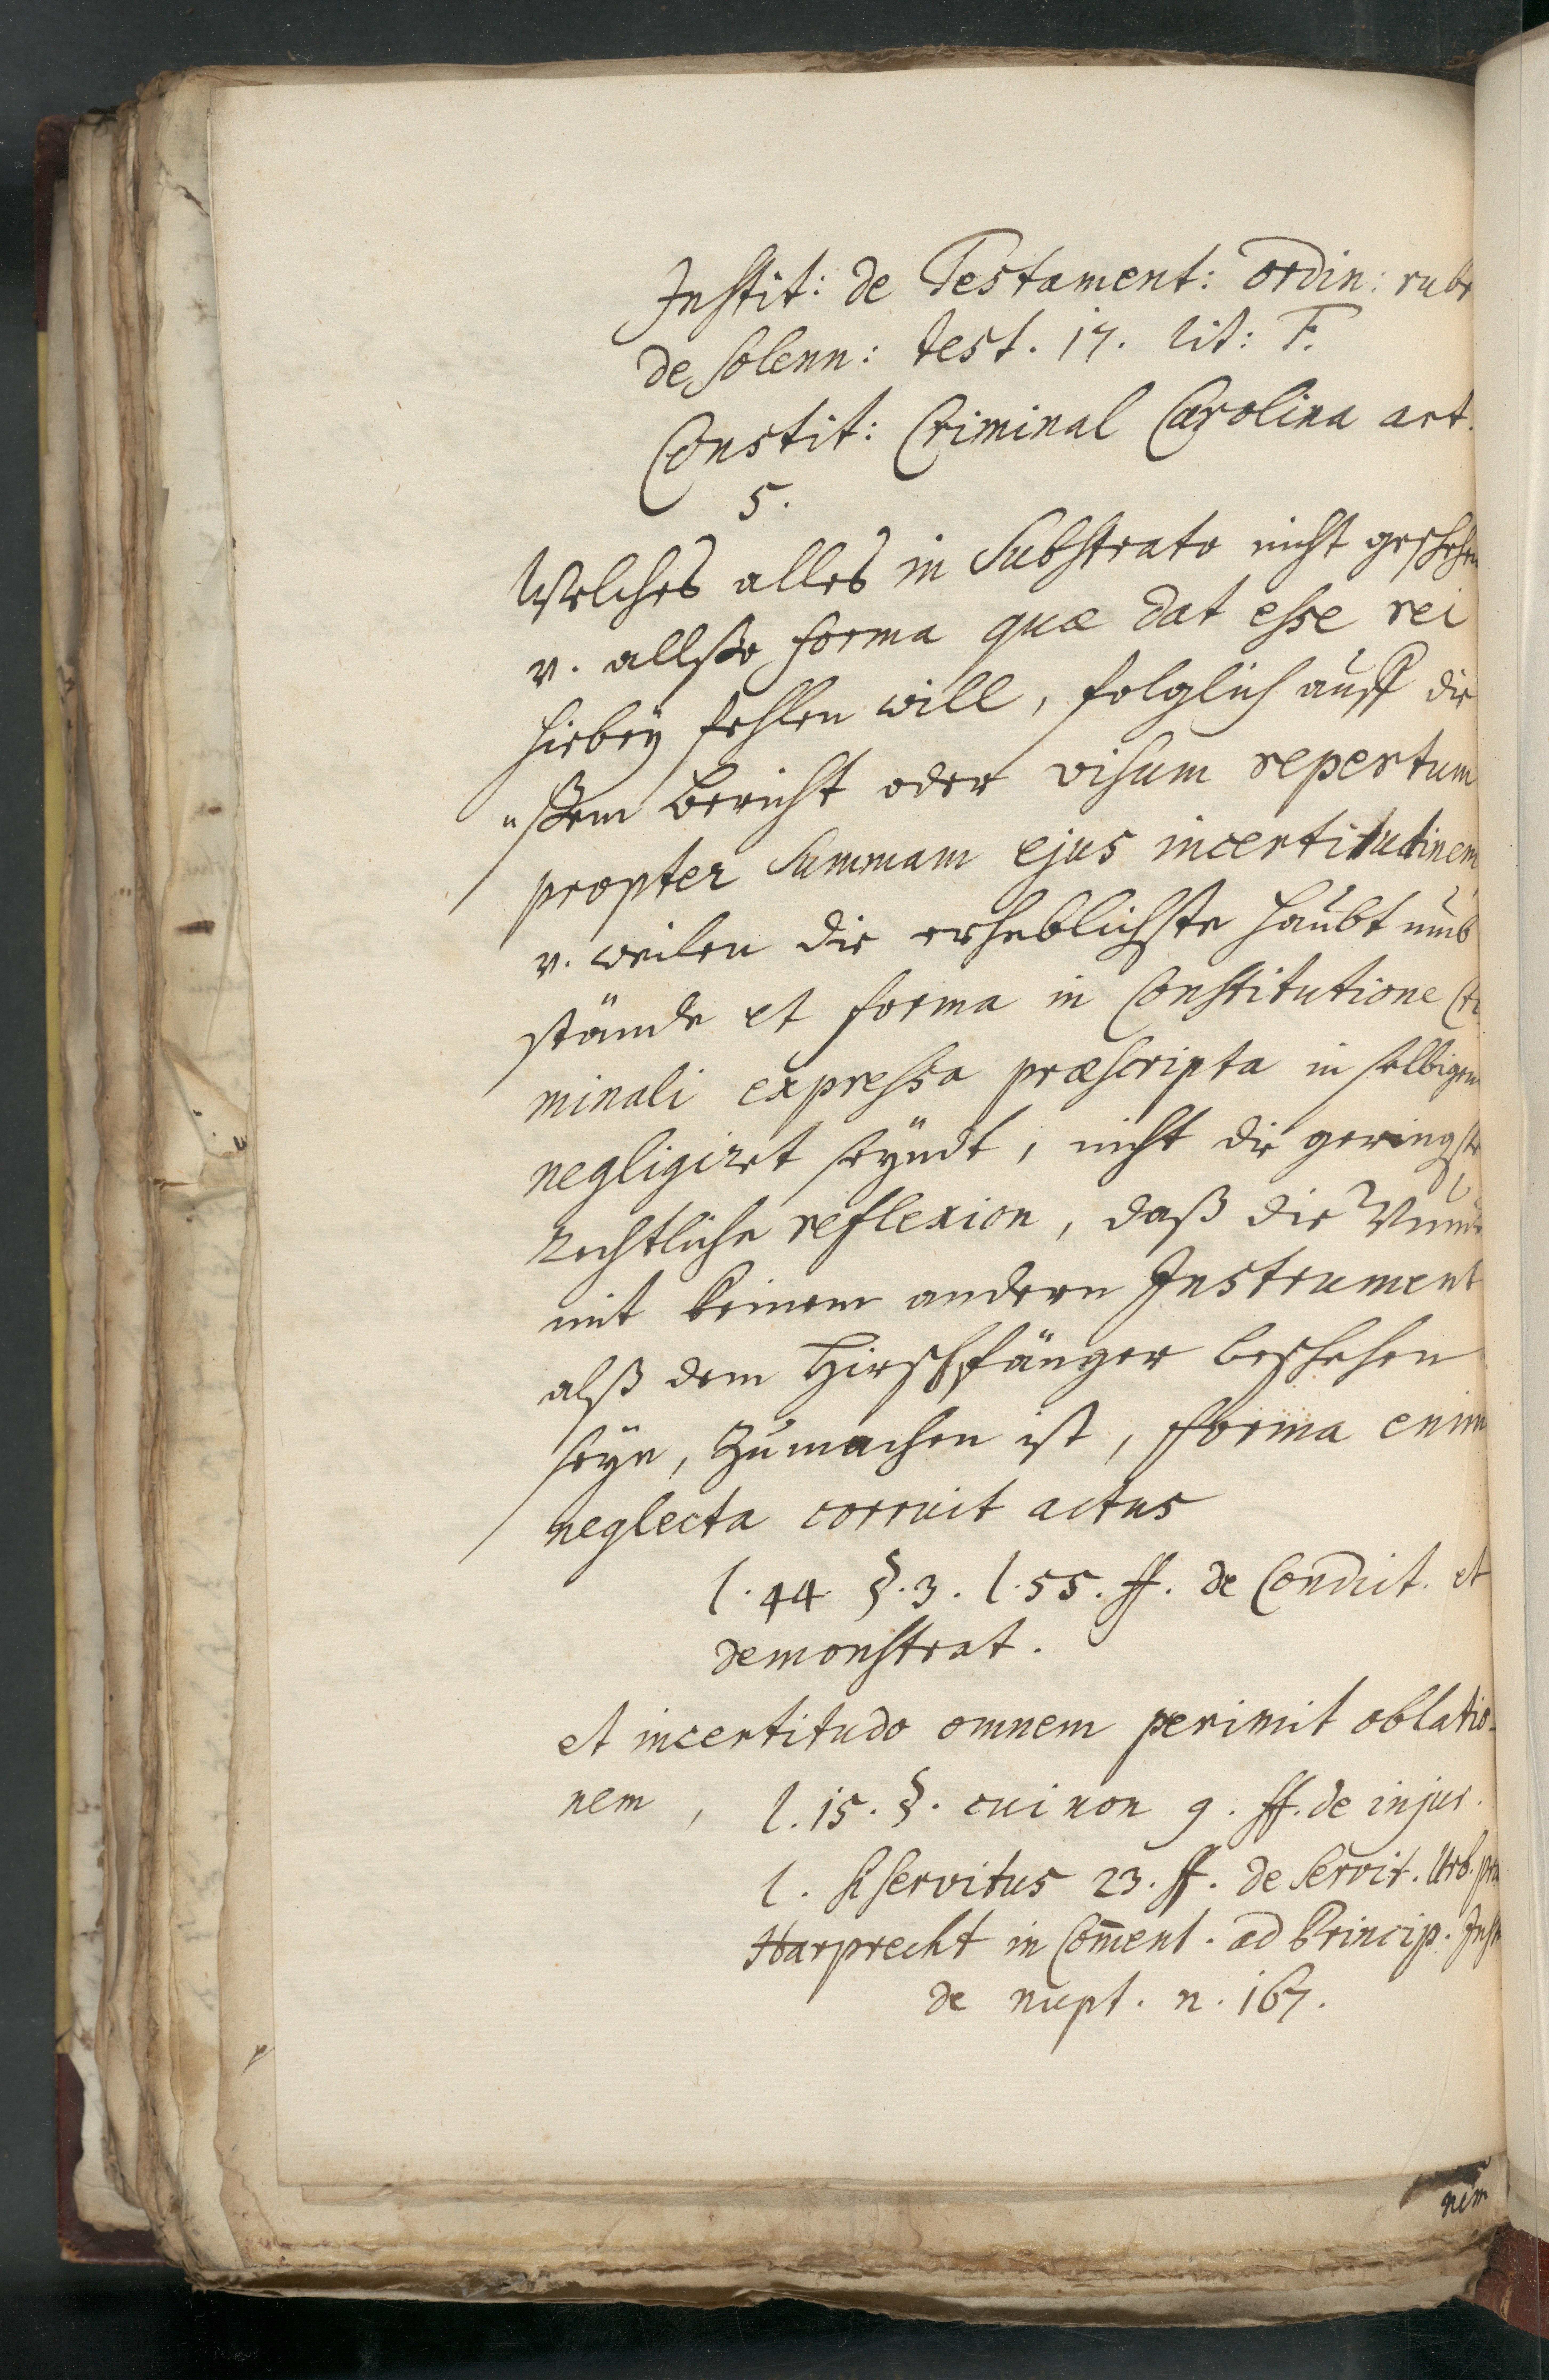 Instit: de Testament: ordin: rubr
de solenn: test. 17. lit: F.
Constit: Criminal Carolina art.
5.
Welches alles in Substrato nicht geschehen
v. allßo forma quæ dat esse rei
hiebeÿ fehlen will, folglich auff die
"ßem bericht oder visum repertum
propter summam ejus incertitudinem
v. weilen die erheblichste haubt umb
stände et forma in Constitutione Cri
minali expressa præscripta in selbigem
negligiret seÿndt, nicht die geringste
rechtliche reflexion, daß die Wunde
mit keinem andern Instrument
alß dem Hirschfänger beschehen
seÿe, zu machen ist, fforma enim
neglecta corruit actus
l. 44 §. 3. l. 55. ff. de Condict. et
demonstrat.
et incertitudo omnem perimit oblatio-
nem, l. 15. §. cui non 9. ff. de injur.
l. si servitus 23. ff. de servit. Urb. præ
Harprecht in Com̄ent. ad Princip. Inst
de nupt. n. 167.
nem